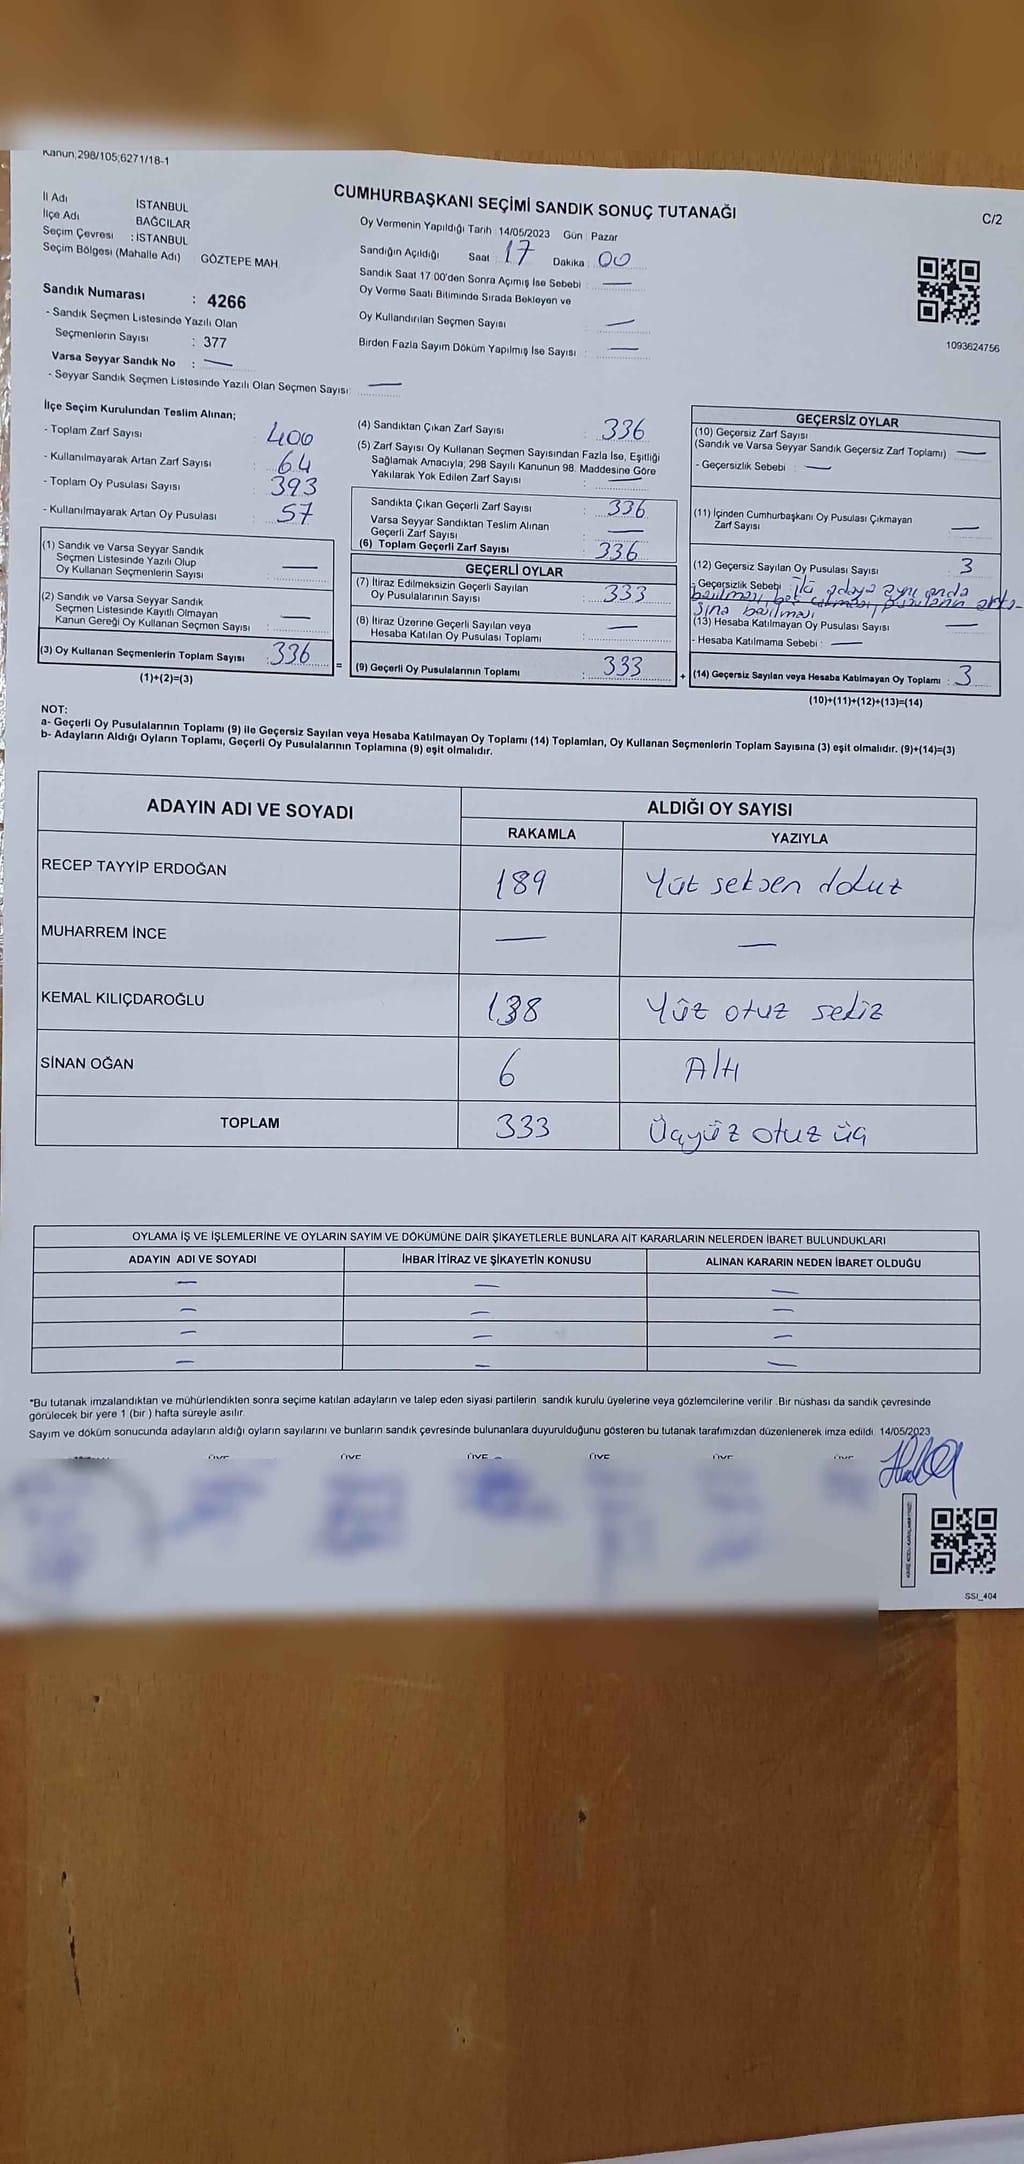 Kanun;298/105;6271/18-1
CUMHURBAŞKANI SEÇİMİ SANDIK SONUÇ TUTANAĞI
C/2
İl Adı İSTANBUL
İlçe Adı BAĞCILAR
Seçim Çevresi : İSTANBUL
Seçim Bölgesi (Mahalle Adı) GÖZTEPE MAH.
Sandık Numarası : 4266
- Sandık Seçmen Listesinde Yazılı Olan
Seçmenlerin Sayısı : 377
Varsa Seyyar Sandık No : —
- Seyyar Sandık Seçmen Listesinde Yazılı Olan Seçmen Sayısı: —
Oy Vermenin Yapıldığı Tarih 14/05/2023 Gün : Pazar
Sandığın Açıldığı Saat 17 Dakika 00
Sandık Saat 17:00'den Sonra Açımış İse Sebebi : —
Oy Verme Saati Bitiminde Sırada Bekleyen ve
Oy Kullandırılan Seçmen Sayısı —
Birden Fazla Sayım Döküm Yapılmış İse Sayısı : —
1093624756
İlçe Seçim Kurulundan Teslim Alınan;
- Toplam Zarf Sayısı 400
- Kullanılmayarak Artan Zarf Sayısı : 64
- Toplam Oy Pusulası Sayısı : 393
- Kullanılmayarak Artan Oy Pusulası : 57
(1) Sandık ve Varsa Seyyar Sandık
Seçmen Listesinde Yazılı Olup
Oy Kullanan Seçmenlerin Sayısı : —
(2) Sandık ve Varsa Seyyar Sandık
Seçmen Listesinde Kayıtlı Olmayan
Kanun Gereği Oy Kullanan Seçmen Sayısı : —
(3) Oy Kullanan Seçmenlerin Toplam Sayısı : 336 =
(1)+(2)=(3)
(4) Sandıktan Çıkan Zarf Sayısı : 336
(5) Zarf Sayısı Oy Kullanan Seçmen Sayısından Fazla İse, Eşitliği
Sağlamak Amacıyla; 298 Sayılı Kanunun 98. Maddesine Göre
Yakılarak Yok Edilen Zarf Sayısı : —
Sandıkta Çıkan Geçerli Zarf Sayısı : 336
Varsa Seyyar Sandıktan Teslim Alınan
Geçerli Zarf Sayısı : —
(6) Toplam Geçerli Zarf Sayısı : 336
GEÇERLİ OYLAR
(7) İtiraz Edilmeksizin Geçerli Sayılan
Oy Pusulalarının Sayısı : 333
(8) İtiraz Üzerine Geçerli Sayılan veya
Hesaba Katılan Oy Pusulası Toplamı : —
(9) Geçerli Oy Pusulalarının Toplamı : 333 +
GEÇERSİZ OYLAR
(10) Geçersiz Zarf Sayısı
(Sandık ve Varsa Seyyar Sandık Geçersiz Zarf Toplamı) —
- Geçersizlik Sebebi : —
(11) İçinden Cumhurbaşkanı Oy Pusulası Çıkmayan
Zarf Sayısı —
(12) Geçersiz Sayılan Oy Pusulası Sayısı 3
- Geçersizlik Sebebi : iki adaya aynı anda
basılması, pusulanın arka-
sına basılması
(13) Hesaba Katılmayan Oy Pusulası Sayısı —
- Hesaba Katılmama Sebebi : —
(14) Geçersiz Sayılan veya Hesaba Katılmayan Oy Toplamı : 3
(10)+(11)+(12)+(13)=(14)
NOT:
a- Geçerli Oy Pusulalarının Toplamı (9) ile Geçersiz Sayılan veya Hesaba Katılmayan Oy Toplamı (14) Toplamları, Oy Kullanan Seçmenlerin Toplam Sayısına (3) eşit olmalıdır. (9)+(14)=(3)
b- Adayların Aldığı Oyların Toplamı, Geçerli Oy Pusulalarının Toplamına (9) eşit olmalıdır.
ADAYIN ADI VE SOYADI ALDIĞI OY SAYISI
RAKAMLA YAZIYLA
RECEP TAYYİP ERDOĞAN 189 Yüz seksen dokuz
MUHARREM İNCE — —
KEMAL KILIÇDAROĞLU 138 Yüz otuz sekiz
SİNAN OĞAN 6 Altı
TOPLAM 333 Üçyüz otuz üç
OYLAMA İŞ VE İŞLEMLERİNE VE OYLARIN SAYIM VE DÖKÜMÜNE DAİR ŞİKAYETLERLE BUNLARA AİT KARARLARIN NELERDEN İBARET BULUNDUKLARI
ADAYIN ADI VE SOYADI İHBAR İTİRAZ VE ŞİKAYETİN KONUSU ALINAN KARARIN NEDEN İBARET OLDUĞU
— — —
— — —
— — —
— — —
*Bu tutanak imzalandıktan ve mühürlendikten sonra seçime katılan adayların ve talep eden siyasi partilerin sandık kurulu üyelerine veya gözlemcilerine verilir .Bir nüshası da sandık çevresinde
görülecek bir yere 1 (bir ) hafta süreyle asılır.
Sayım ve döküm sonucunda adayların aldığı oyların sayılarını ve bunların sandık çevresinde bulunanlara duyurulduğunu gösteren bu tutanak tarafımızdan düzenlenerek imza edildi. 14/05/2023
ÜYE ÜYE ÜYE ÜYE ÜYE ÜYE
SSI_404